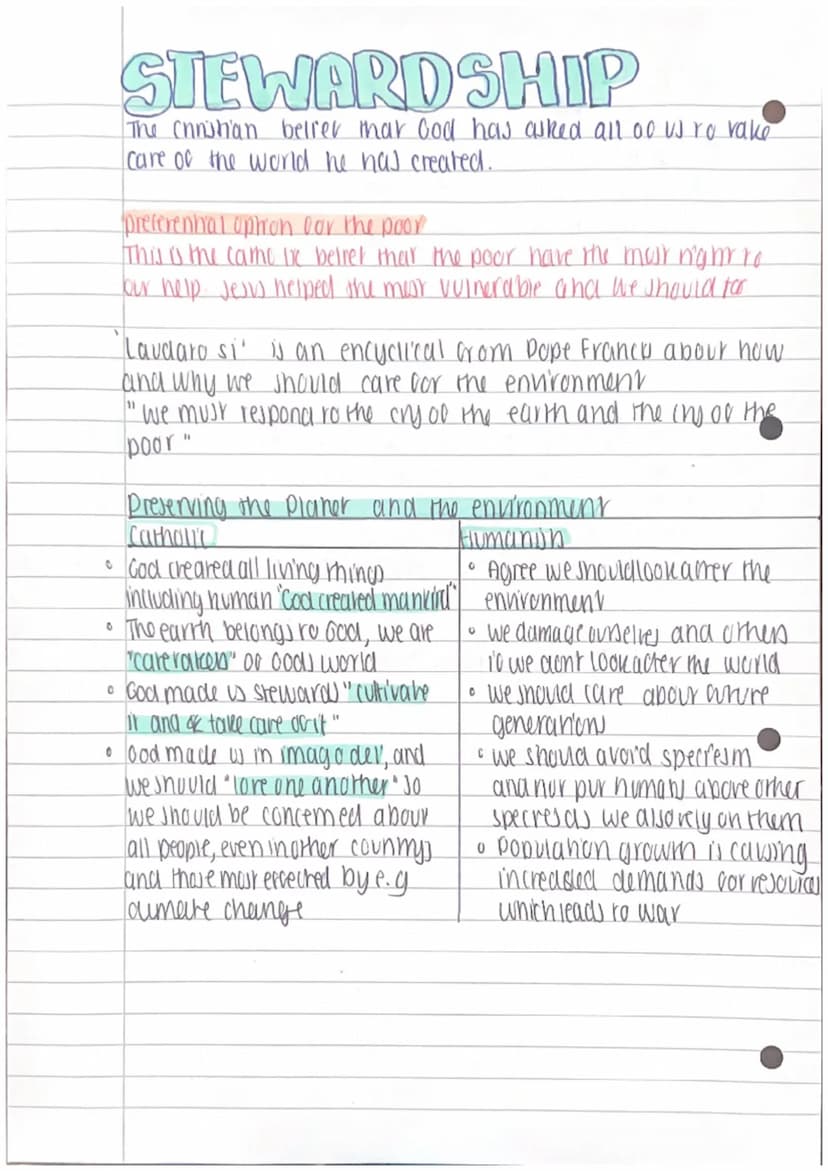 STEWARDSHIP
The Christian belief that God has asked all of us to take
care of the world he has created.
preferential option for the poor
This is the Catholic belief that the poor have the most right to
our help. Jesus helped the most vulnerable and we should too
'Laudato si' is an encyclical from Pope Francis about how
and why we should care for the environment
"We must respond to the cry of the earth and the cry of the
poor"
Preserving the Planet and the environment
Catholic
God created all living things
including human "God created mankind"
The earth belongs to God, we are
"caretakers" of Gods world
God made us stewards "cultivate
it and take care of it"
God made us in imago dei, and
we should "love one another" so
we should be concerned about
all people, even in other countrys
and those most effected by e.g
climate change
Humanism
Agree we should look after the
environment
we damage ourselves and others
if we dont look after the world
we should care about future
generations
we should avoid speciesm
and not put humans above other
species as we also rely on them
Population growth is causing
increased demands for resources
which leads to war